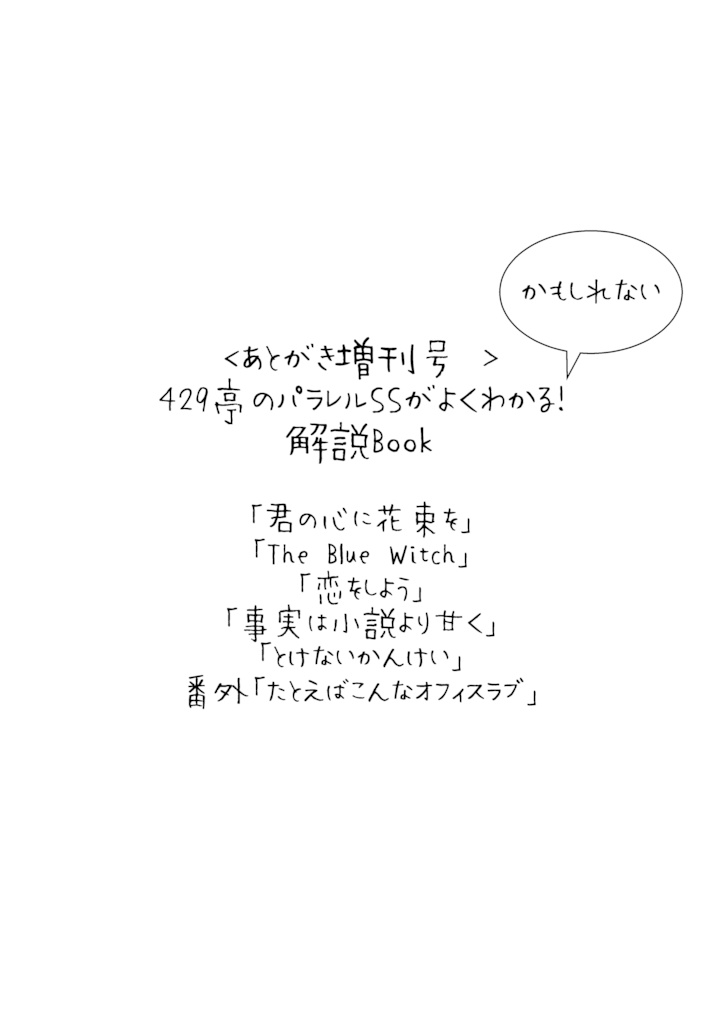 かもしれない
<あとがき増刊号　>
429亭のパラレルSSがよくわかる!
解説Book
「君の心に花束を」
「The Blue Witch」
「恋をしよう」
「事実は小説より甘く」
「とけないかんけい」
番外「たとえばこんなオフィスラブ」